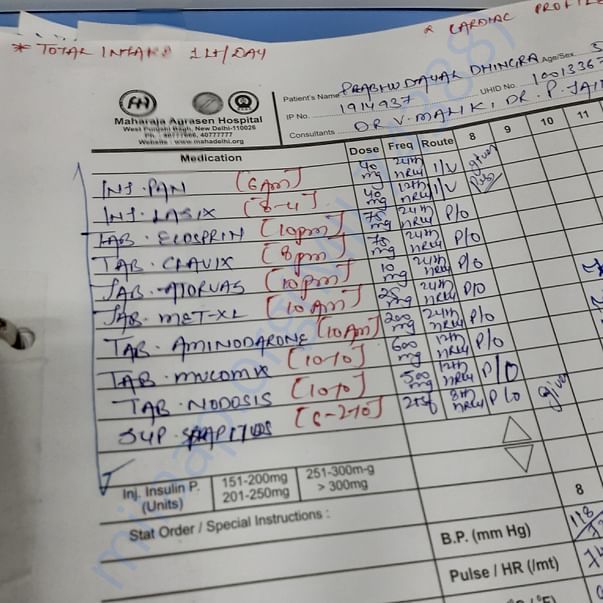 * CARDIAC PROFILE
* TOTAL INTAKE 1 Lt/DAY
Maharaja Agrasen Hospital
West Punjabi Bagh, New Delhi-110026
Ph : 40777666, 40777777
Website : www.mahadelhi.org
Patient's Name PRABHU DAYAL DHINGRA Age/Sex
IP No. 1914937 UHID No.
Consultants DR V. MALIK, DR. P. JAIN
Medication Dose Freq Route 8 9 10 11
INJ. PAN [6Am] 40 mg 24th hrly I/V given
INJ. LASIX [8-4] 40 mg 12th hrly I/V
TAB. ECOSPRIN [10pm] 75 mg 24th hrly P/O
TAB. CLAVIX [8pm] 75 mg 24th hrly P/O
TAB. ATORVAS [10pm] 10 mg 24th hrly P/O
TAB. MET-XL [10Am] mg 24th hrly P/O
TAB. AMINODARONE [10Am] 200 mg 24th hrly P/O
TAB. MUCOMIX [10-10] 600 mg 12th hrly P/O
TAB. NODOSIS [10-10] 500 mg 12th hrly P/O
SYP. [6-2-10] 8th hrly P/O given
Inj. Insulin P. 151-200mg 251-300m-g
(Units) 201-250mg > 300mg
Stat Order / Special Instructions :
8
B.P. (mm Hg) 118
Pulse / HR (/mt)